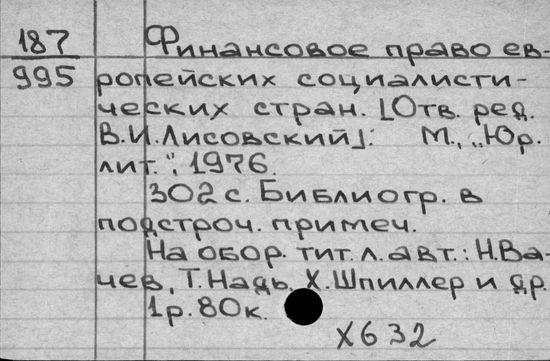 187
995
Финансовое право ев-
ропейских социалисти-
ческих стран. [Отв. ред.
В.И.Лисовский]: М., „Юр.
лит.", 1976.
302 с. Библиогр. в
подстроч. примеч.
На обор. тит. л. авт.: Н.Ва-
чев, Т.Надь, Х.Шпиллер и др.
1р. 80к.
Х632